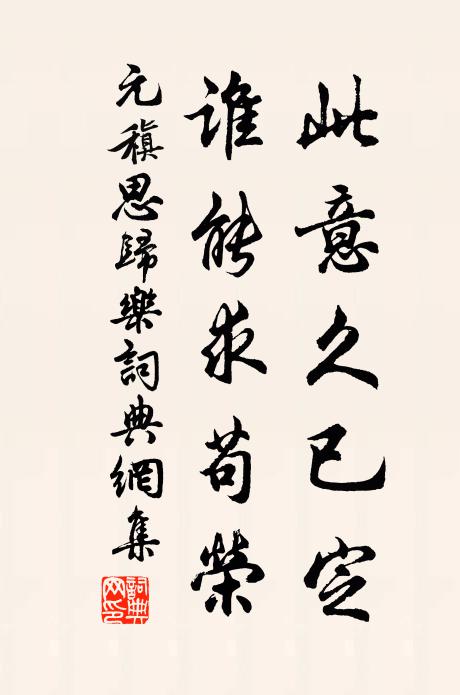 此意久已定
誰能求苟榮
元稹思歸樂詞典網集
詞典網印